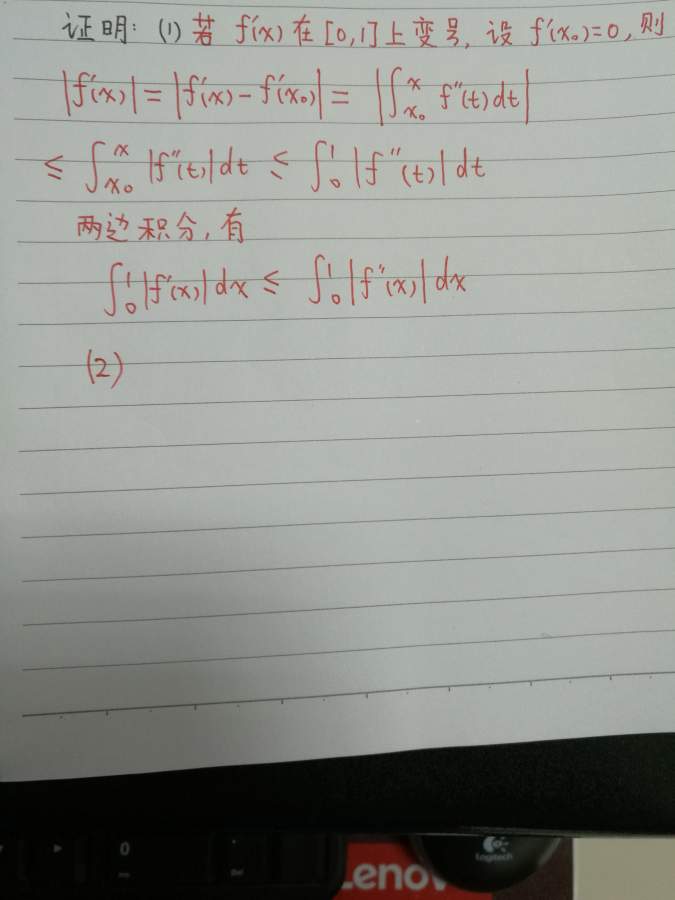 证明: (1) 若 f'(x) 在 [0,1] 上变号, 设 f'(x₀)=0, 则
|f'(x)| = |f'(x) - f'(x₀)| = |∫_{x₀}^{x} f''(t)dt|
≤ ∫_{x₀}^{x} |f''(t)|dt ≤ ∫_0^1 |f''(t)| dt
两边积分, 有
∫_0^1 |f'(x)| dx ≤ ∫_0^1 |f''(x)| dx
(2)
0
Lenov
Logitech